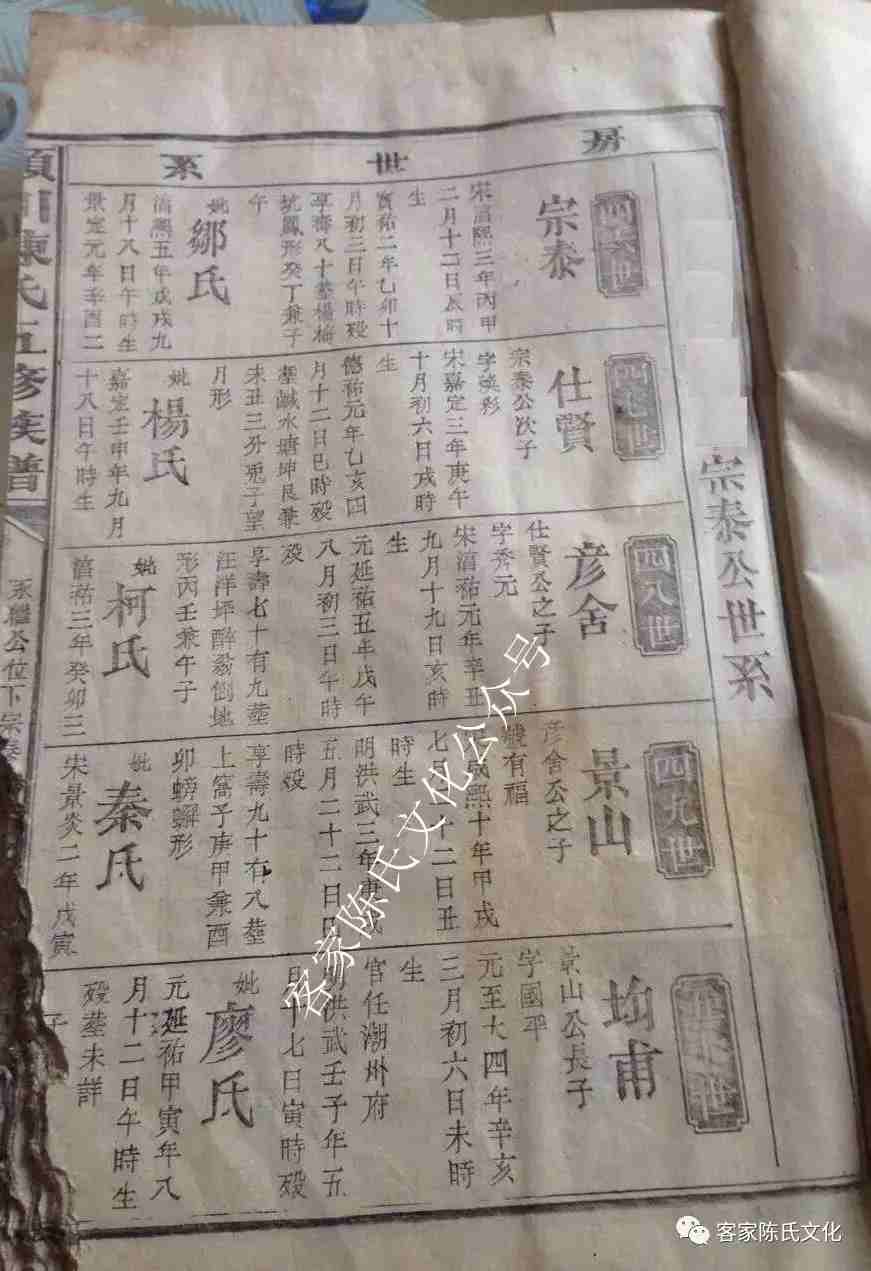 房世系
宗泰公世系
四六世
宗泰
宋淳熙三年丙甲
二月十二日辰時
生
寳祐二年乙卯十
月初三日午時殁
享壽八十塟楊梅
坑鳳形癸丁兼子
午
妣
鄒氏
淳熙五年戊戌九
月十八日午時生
景定元年辛酉二
四七世
仕賢
宗泰公次子
字煥彩
宋嘉定三年庚午
十月初六日戌時
生
德祐元年乙亥四
月十二日巳時殁
塟鹹水塘坤艮兼
未丑三分兎子望
月形
妣
楊氏
嘉定壬申年九月
十八日午時生
四八世
彦舍
仕賢公之子
字秀元
宋淳祐元年辛丑
九月十九日亥時
生
元延祐五年戊午
八月初三日午時
殁
享壽七十有九塟
汪洋坪醉翁倒地
形丙壬兼午子
妣
柯氏
淳祐三年癸卯三
四九世
景山
彦舍公之子
號有福
咸熙十年甲戌
七月二十二日丑
時生
明洪武三年庚戌
五月二十二日
時殁
享壽九十有八塟
上窩子庚甲兼酉
卯螃蠏形
妣
秦氏
宋景炎二年戊寅
五十世
均甫
景山公長子
字國平
元至大四年辛亥
三月初六日未時
生
官任潮州府
明洪武壬子年五
月十七日寅時殁
妣
廖氏
元延祐甲寅年八
月十二日午時生
殁塟未詳
子
潁川陳氏五修族譜
永繼公位下宗泰
客家陈氏文化公众号
客家陈氏文化